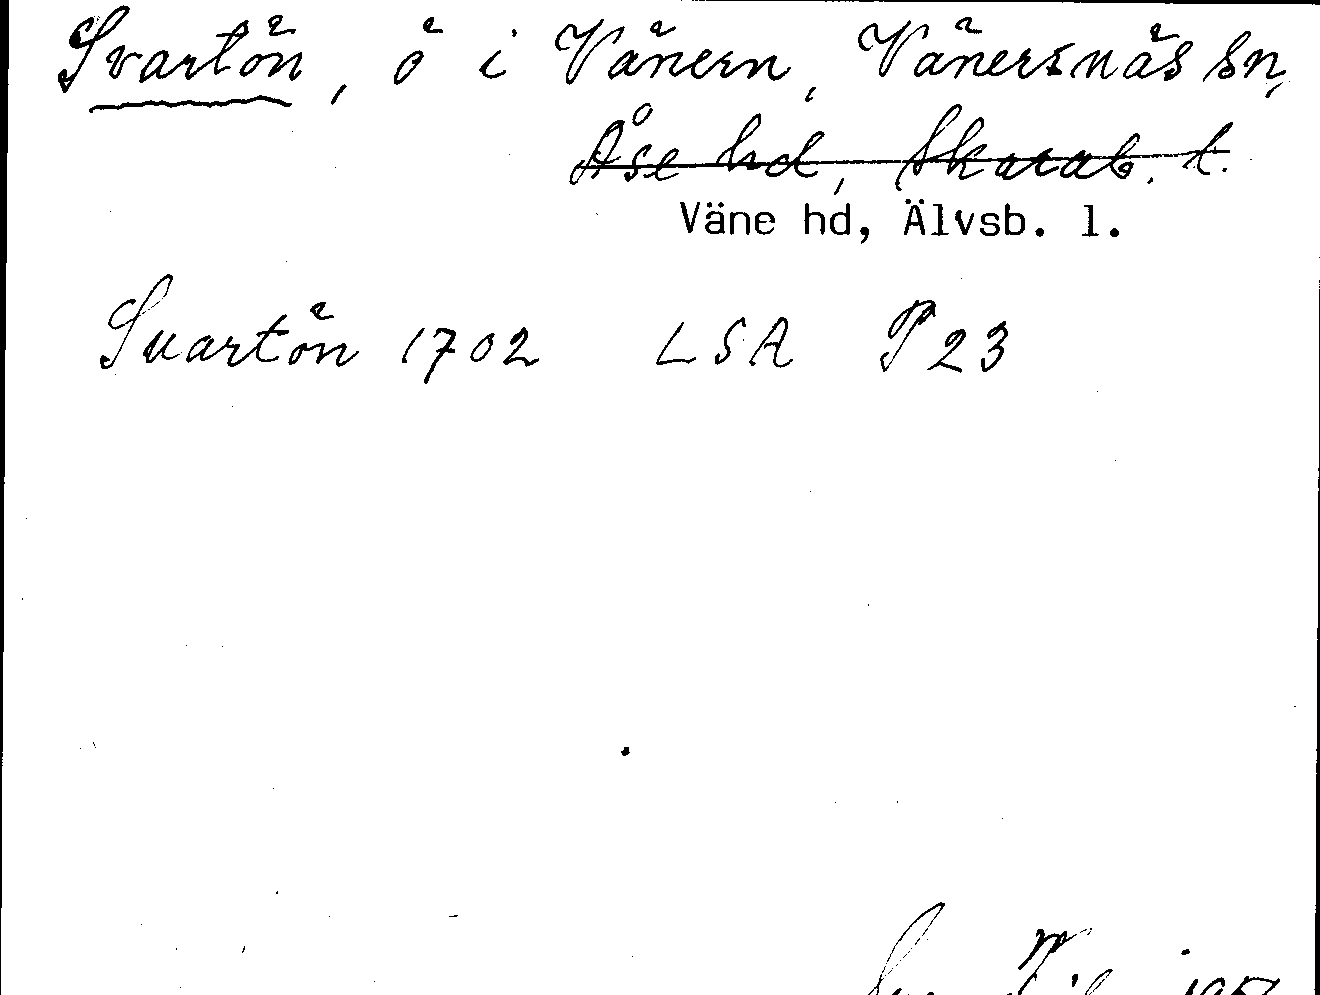 Svartön, ö i Vänern, Vänersnäs sn,
Åse hd, Skarab. l.
Väne hd, Älvsb. l.
Suartön 1702 LSA P23